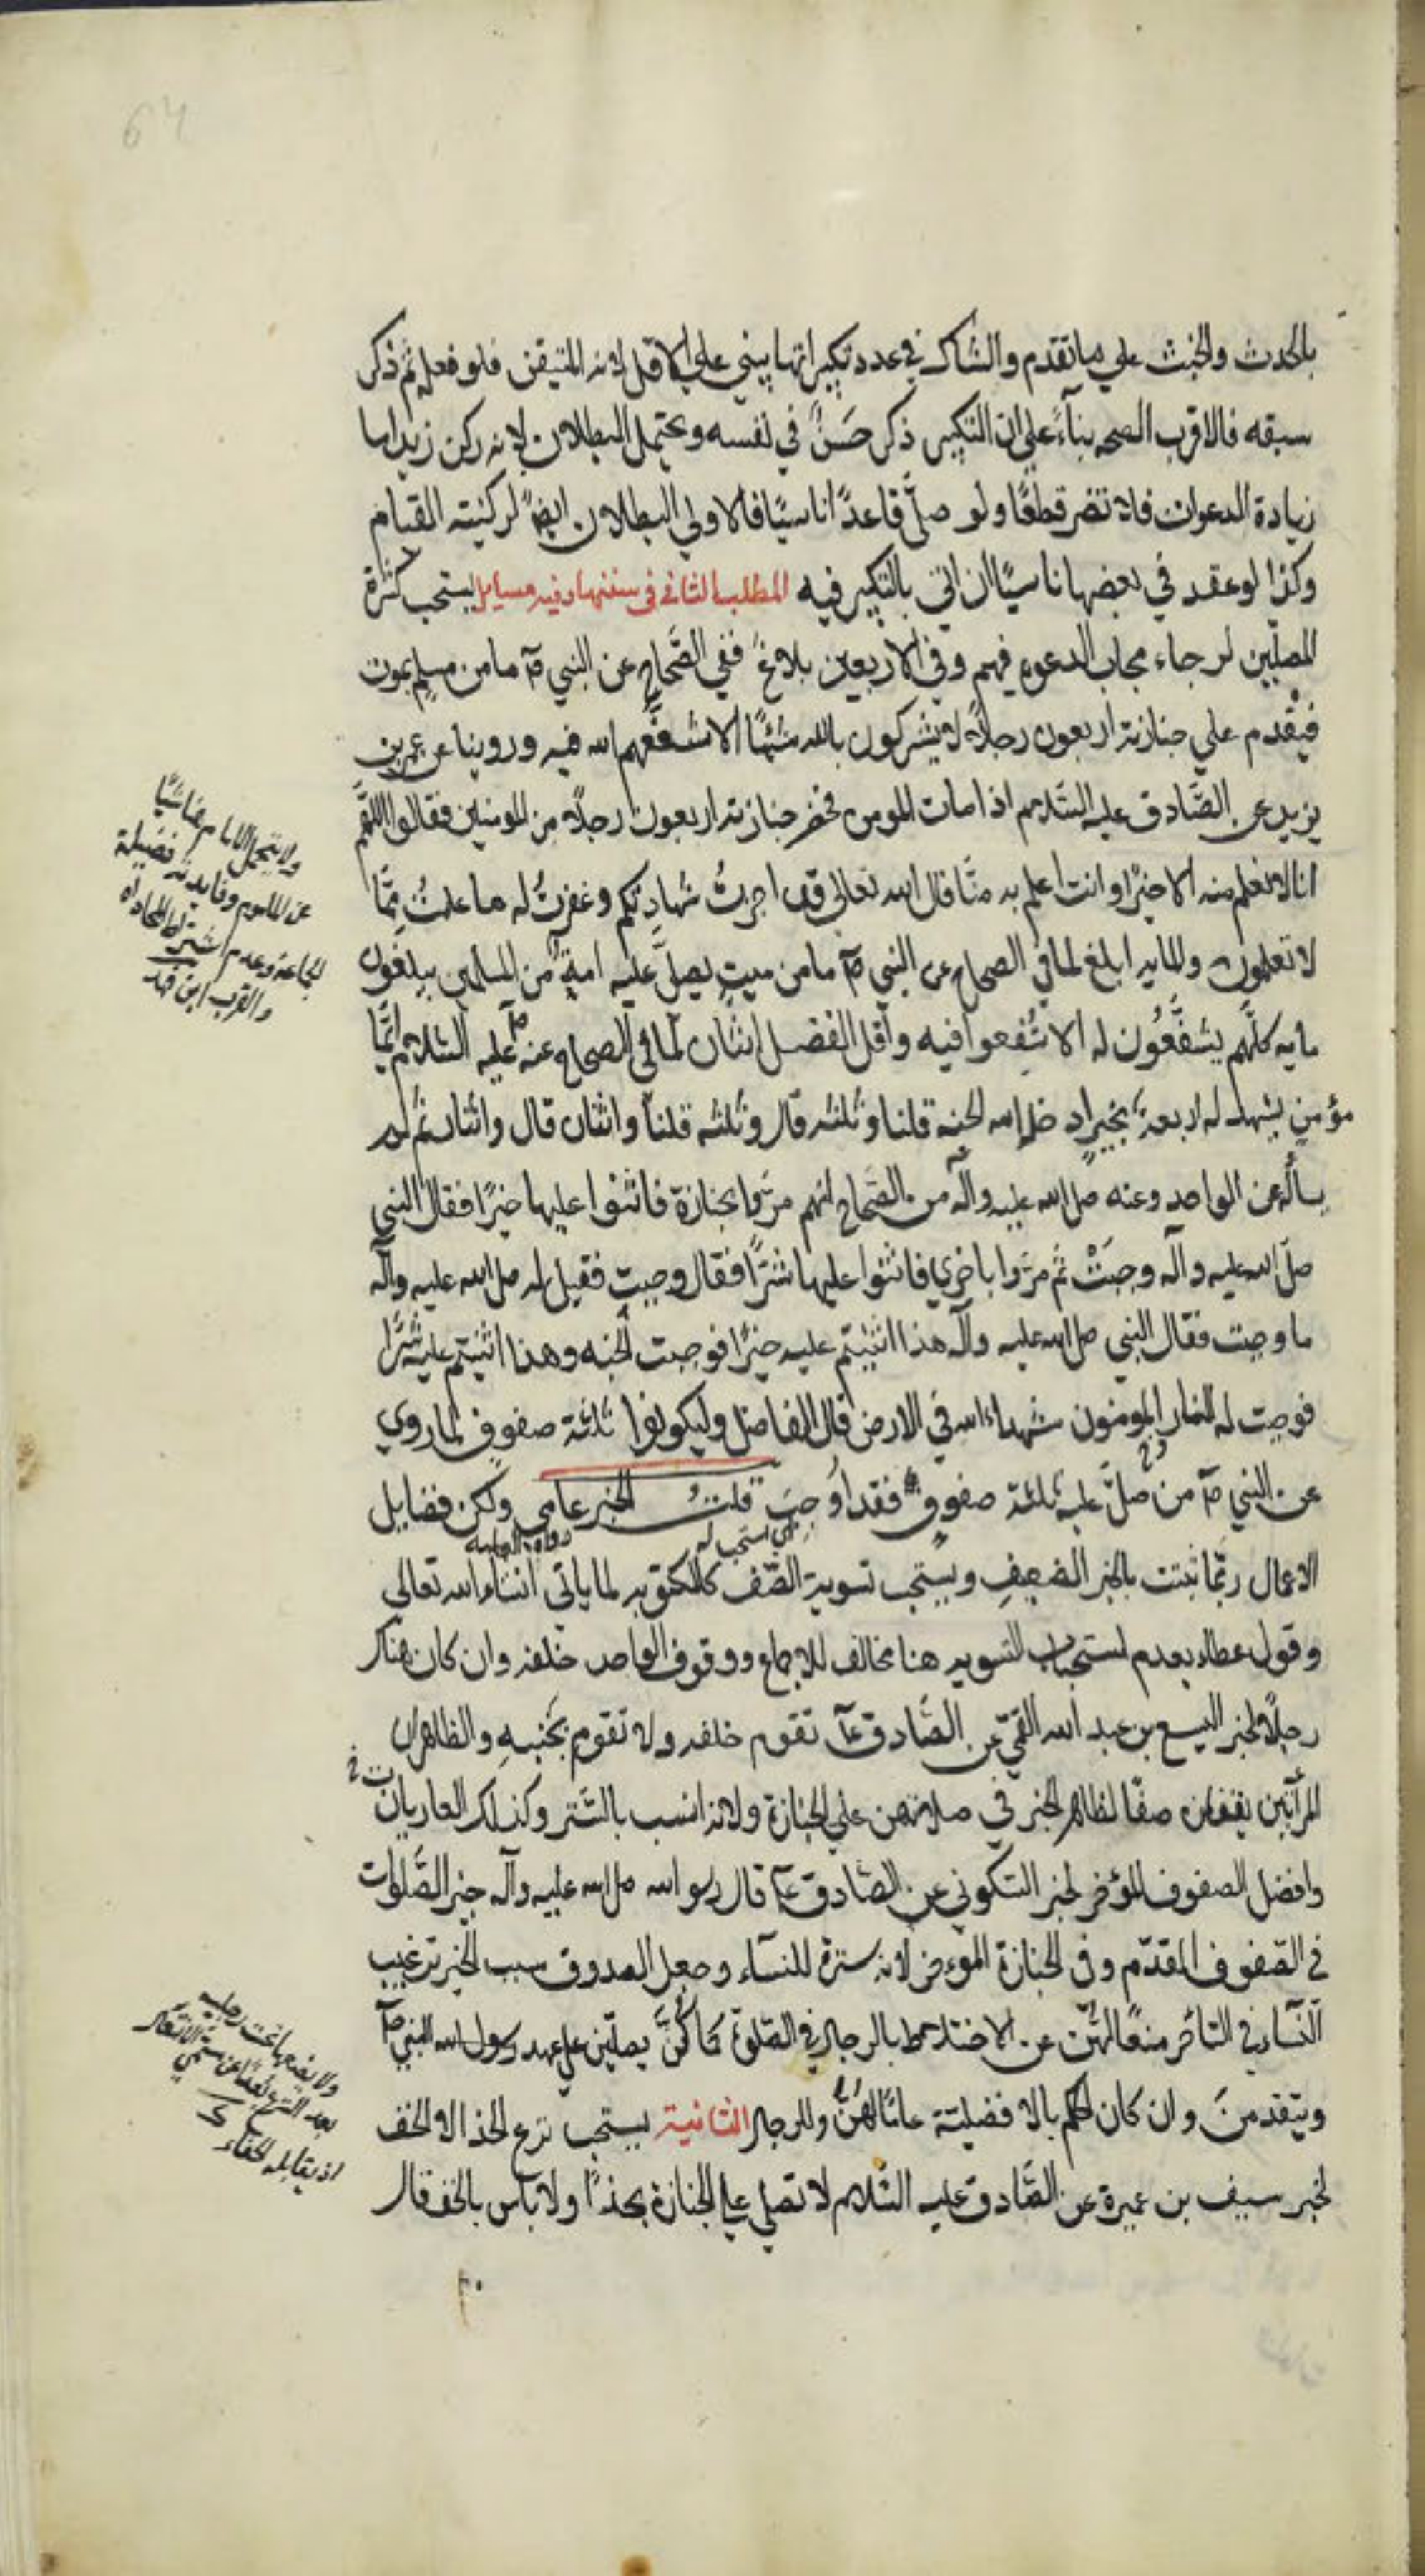 64
بالحدث والخبث علي ما تقدم والشاك في عدد تكبيراتها يبني علي الاقل لانه المتيقن فلو فعله ثم ذكر
سبقه فالاقرب الصحه بنآءً علي ان التكبير ذكر حَسَنٌ في نفسه ويحتمل البطلان لانه ركن زيد اما
زيادة الدعوات فلا تضر قطعًا ولو صلّى قاعدًا ناسيًا فالاولي البطلان ايضًا لركنيته القيام
وكذا لو عقد في بعضها ناسيًا ان اتي بالتكبير فيه المطلب الثاني في سننها وفيه مسايل يستحب كثرة
المصلّين لرجاء مجاب الدعوة فيهم وفي الاربعين بلاغ ففي الصّحاح عن النبي صآ ما من مسلم يموت
فيقدم علي جنازته اربعون رجلاً لا يشركون بالله شيئًا الا شفّعهم الله فيه وروينا عن عمر بن
يزيد عن الصّادق عليه السّلام اذا مات المومن فحضر جنازته اربعون رجلاً من المومنين فقالوا اللّهمّ
انا لا نعلم منه الا خيرًا وانت اعلم به منّا قال الله تعالي قد اجزتُ شهادتكم وغفرتُ له ما علمتُ ممّا
لا تعلمون والمايه ابلغ لما في الصحاح عن النبي صآ ما من ميت يصلّ عليه امةٌ من المسلمين يبلغون
مايه كلّهم يشفّعُون له الا شُفعوا فيه واقل الفضل اثنان لما في الصحاح عنه صآ عليه السلام ايّما
مؤمنٍ يشهد له اربعة بخيرٍ ادخله الله الجنه قلنا وثلثه قال وثلثه قلنا واثنان قال واثنان ثم لم
نسأله عن الواحد وعنه صلي الله عليه وآله من الصّحاح انهم مرّوا بجنازة فاثنوا عليها خيرًا فقال النبي
صلّ الله عليه وآله وجبَتْ ثم مرّوا باخري فاثنوا عليها شرًّا فقال وجبت فقيل له صلي الله عليه وآله
ما وجبت فقال النبي صلي الله عليه وآله هذا اثنيتم عليه خيرًا فوجبت له الجنه وهذا اثنيتم عليه شرًّا
فوجبت له النار المومنون شهداء الله في الارض قال الفاضل وليكونوا ثلثة صفوف لما روي
عن النبي صآ من صلّ عليه ثلثة صفوف فقد اوجبَ قلتُ الخبر عامي ولكن فضايل
اي استحب له رواه العامه
الاعمال ربّما ثبتت بالخبر الضعيف ويستحب تسوية الصّف كالمكتوبه لما ياتي انشاء الله تعالي
وقول عطاء بعدم استحباب التسويه هنا مخالف للاجماع ووقوف الواحد خلفه وان كان هناك
رجلاً لخبر اليسع بن عبد الله القمّي عن الصّادق عآ تقوم خلفه ولا تقوم بجنبه والظاهر ان
المرأتين يقفان صفًّا لظاهر الخبر في صلاتهن علي الجنازة ولانه انسب بالسّتر وكذلك العاريان
وافضل الصفوف المؤخر لخبر السّكوني عن الصّادق عآ قال رسو الله صلي الله عليه وآله خير الصّلوات
في الصّفوف المقدّم وفي الجنازة المؤخر لانه سترة للنسآء وجعل الصدوق سبب الخبر ترغيب
النّسآء في التأخر منعًا لهنّ عن الاختلاط بالرجال في الصّلوة كما كُنَّ يصلّين علي عهد رسول الله النبي صآ
ويتقدمنَ وان كان الحكم بالافضليّة عامًّا لهُنّ وللرجال الثانية يستحب نزع الحذا لا الخف
لخبر سيف بن عميرة عن الصّادق عليه السّلام لا تصلي علي الجنازة بحذًا ولا باس بالخف قال
ولا يتحمل الامام هنا شيئًا
عن الماموم وفايدته فضيلة
الجماعة وعدم اشتراط المحاذاه
والقرب ابن فهد
بعد الشرع
اذ يقابله الحفاء